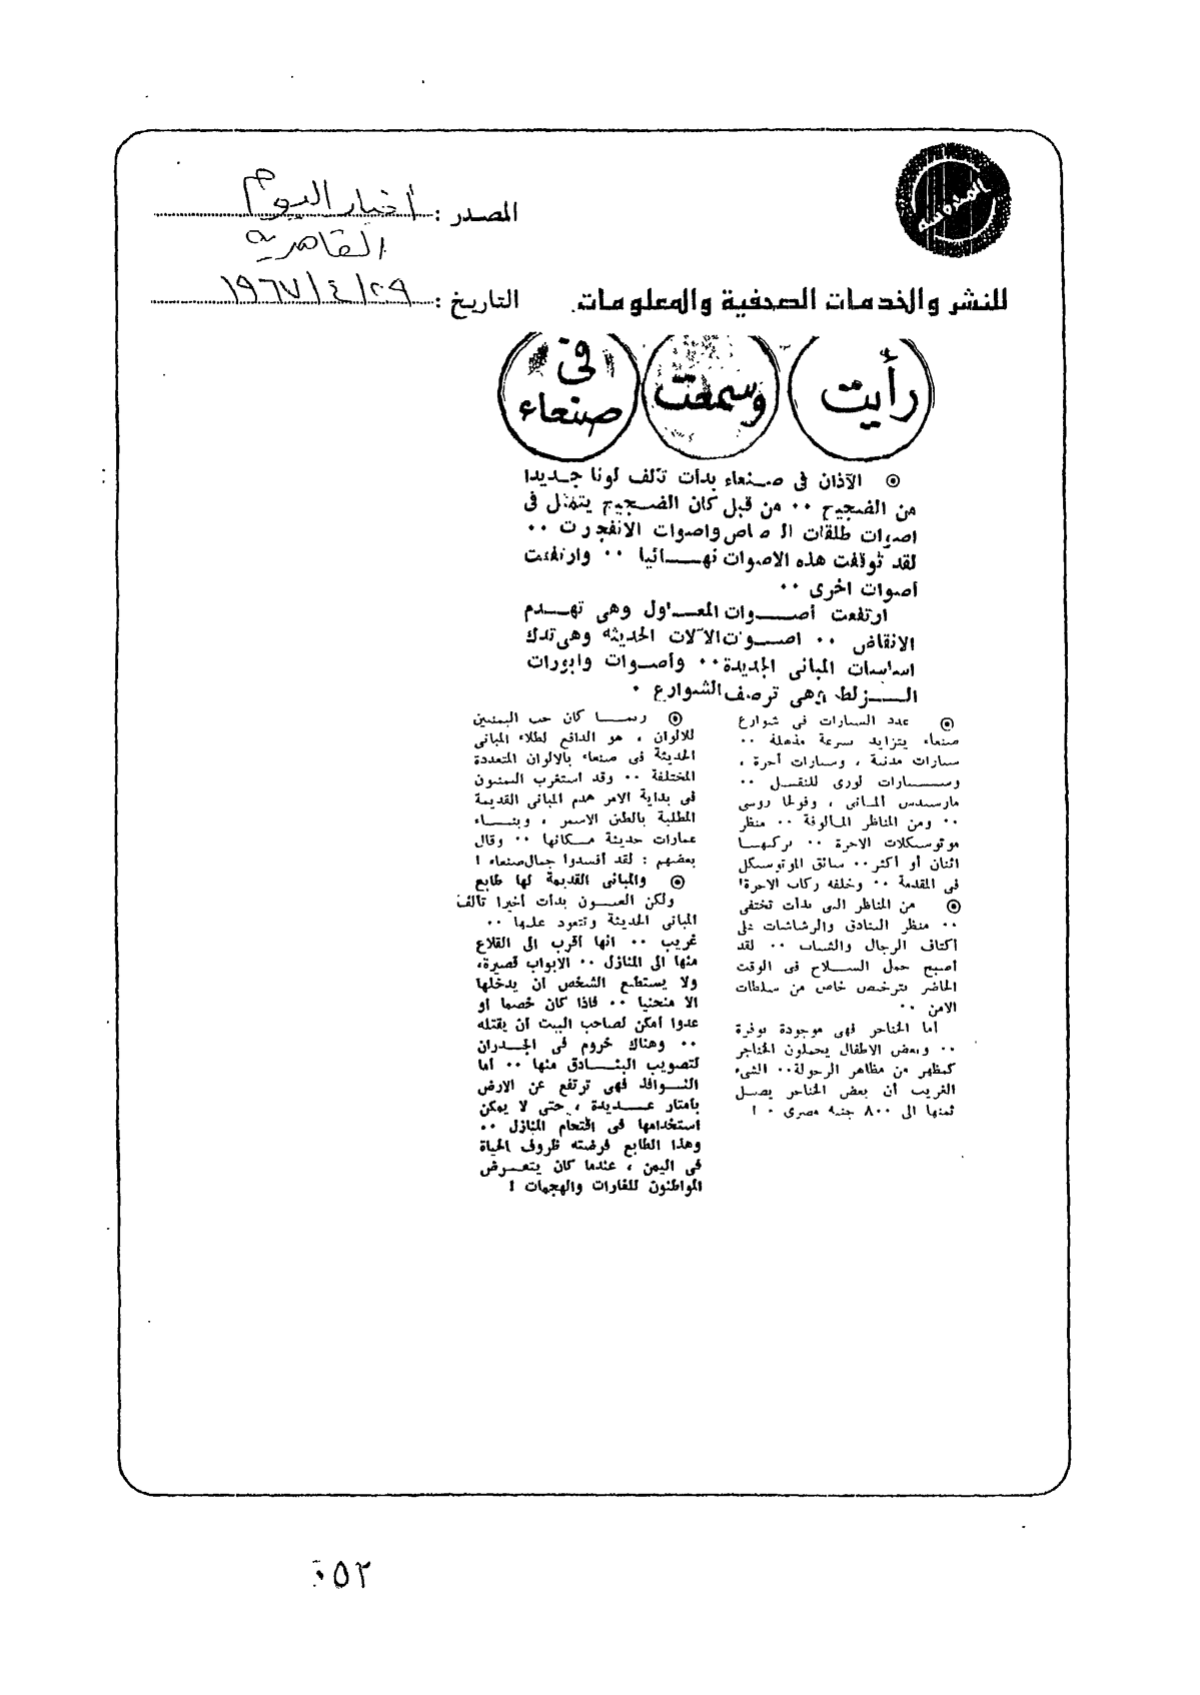 المصدر : أخبار اليوم
القاهرية
للنشر والخدمات الصحفية والمعلومات. التاريخ : ١٩٦٧/٤/٢٩
رأيت وسمعت فى صنعاء
الآذان فى صنعاء بدأت تألف لونا جديدا
من الضجيح ٠٠ من قبل كان الضجيج يتمثل فى
اصوات طلقات الرصاص واصوات الانفجرت ٠٠
لقد توقفت هذه الاصوات نهائيا ٠٠ وارتفعت
أصوات اخرى ٠٠
ارتفعت أصوات المعاول وهى تهدم
الانقاض ٠٠ اصوات الآلات الحديثه وهى تدك
اساسات المبانى الجديدة ٠٠ وأصوات وابورات
الزلط وهى ترصف الشوارع ٠
عدد السيارات فى شوارع
صنعاء يتزايد بسرعة مذهلة ٠٠
سيارات مدنية ، وسيارات أجرة ،
وسيارات لورى للنقل ٠٠
مارسيدس المانى ، وفولجا روسى
٠٠ ومن المناظر المألوفة ٠٠ منظر
موتوسيكلات الاجرة ٠٠ يركبها
اثنان أو أكثر ٠٠ سائق الموتوسيكل
فى المقدمة ٠٠ وخلفه ركاب الاجرة!
من المناظر التى بدأت تختفى
٠٠ منظر البنادق والرشاشات على
أكتاف الرجال والشباب ٠٠ لقد
أصبح حمل السلاح فى الوقت
الحاضر بترخيص خاص من سلطات
الامن ٠٠
أما الخناجر فهى موجودة بوفرة
٠٠ وبعض الاطفال يحملون الخناجر
كمظهر من مظاهر الرجولة ٠٠ الشىء
الغريب أن بعض الخناجر يصل
ثمنها الى ٨٠٠ جنيه مصرى ٠ !
ربما كان حب اليمنيين
للالوان ، هو الدافع لطلاء المبانى
الحديثة فى صنعاء بالالوان المتعددة
المختلفة ٠٠ وقد استغرب اليمنيون
فى بداية الامر هدم المبانى القديمة
المطلية بالطين الاسمر ، وبناء
عمارات حديثة مكانها ٠٠ وقال
بعضهم : لقد أفسدوا جمال صنعاء !
والمبانى القديمة لها طابع
ولكن العيون بدأت أخيرا تألف
المبانى الحديثة وتتعود عليها ٠٠
غريب ٠٠ انها أقرب الى القلاع
منها الى المنازل ٠٠ الابواب قصيرة،
ولا يستطيع الشخص أن يدخلها
الا منحنيا ٠٠ فاذا كان خصما او
عدوا أمكن لصاحب البيت أن يقتله
٠٠ وهناك خروم فى الجدران
لتصويب البنادق منها ٠٠ أما
النوافذ فهى ترتفع عن الارض
بأمتار عديدة ، حتى لا يمكن
استخدامها فى اقتحام المنازل ٠٠
وهذا الطابع فرضته ظروف الحياة
فى اليمن ، عندما كان يتعرض
المواطنون للغارات والهجمات !
٥٢